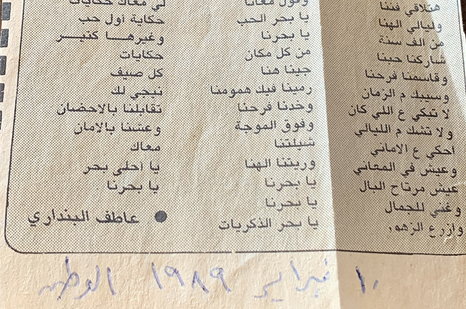 هتلاقي فننا
وليالي الهنا
من الف سنة
شاركنا حبنا
وقاسمنا فرحنا
وسيبك م الزمان
لا تبكي ع اللي كان
ولا تشك م الليالي
احكي ع الاماني
وعيش في المعاني
عيش مرتاح البال
وغني للجمال
وازرع الزهور
وقول معانا
يا بحر الحب
يا بحرنا
من كل مكان
جينا هنا
رمينا فيك همومنا
وخدنا فرحنا
وفوق الموجة
شيلتنا
وريتنا الهنا
يا بحرنا
يا بحرنا
يا بحر الذكريات
لي معاك حكايات
حكاية أول حب
وغيرها كتير
حكايات
كل صيف
نيجي لك
تقابلنا بالاحضان
وعشنا بالامان
معاك
يا أحلى بحر
يا بحرنا
● عاطف البنداري
١٠ فبراير ١٩٨٩ الوطن